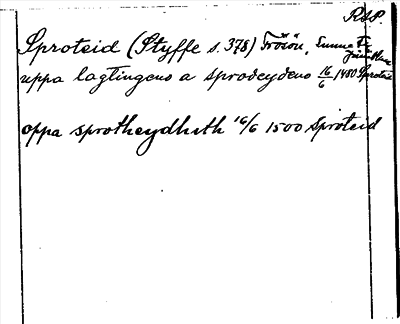 RAP.
Sproteid (Styffe s. 378) Frösön, Sunne
uppa lagtingeno a sprodeydeno 16/6 1480 Sproteid
oppa sprotheydhith 16/6 1500 Sproteid